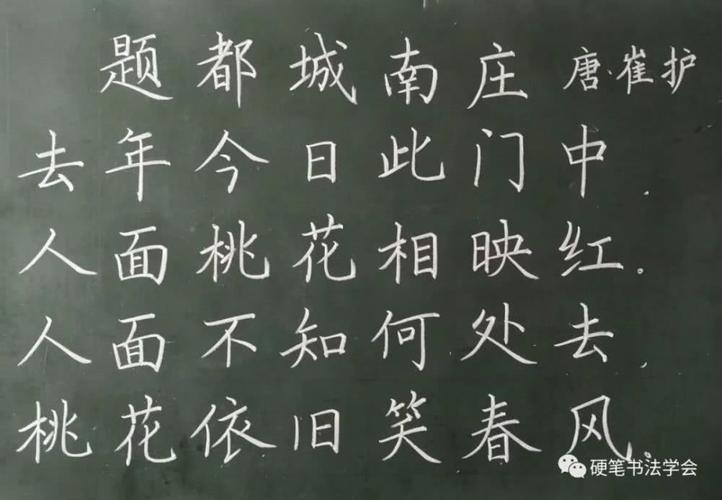 题都城南庄 唐·崔护
去年今日此门中.
人面桃花相映红.
人面不知何处去.
桃花依旧笑春风.
硬笔书法学会